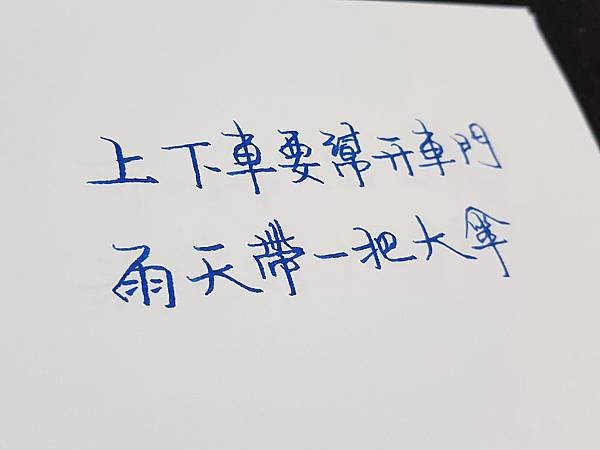 上下車要幫开車門
雨天帶一把大傘